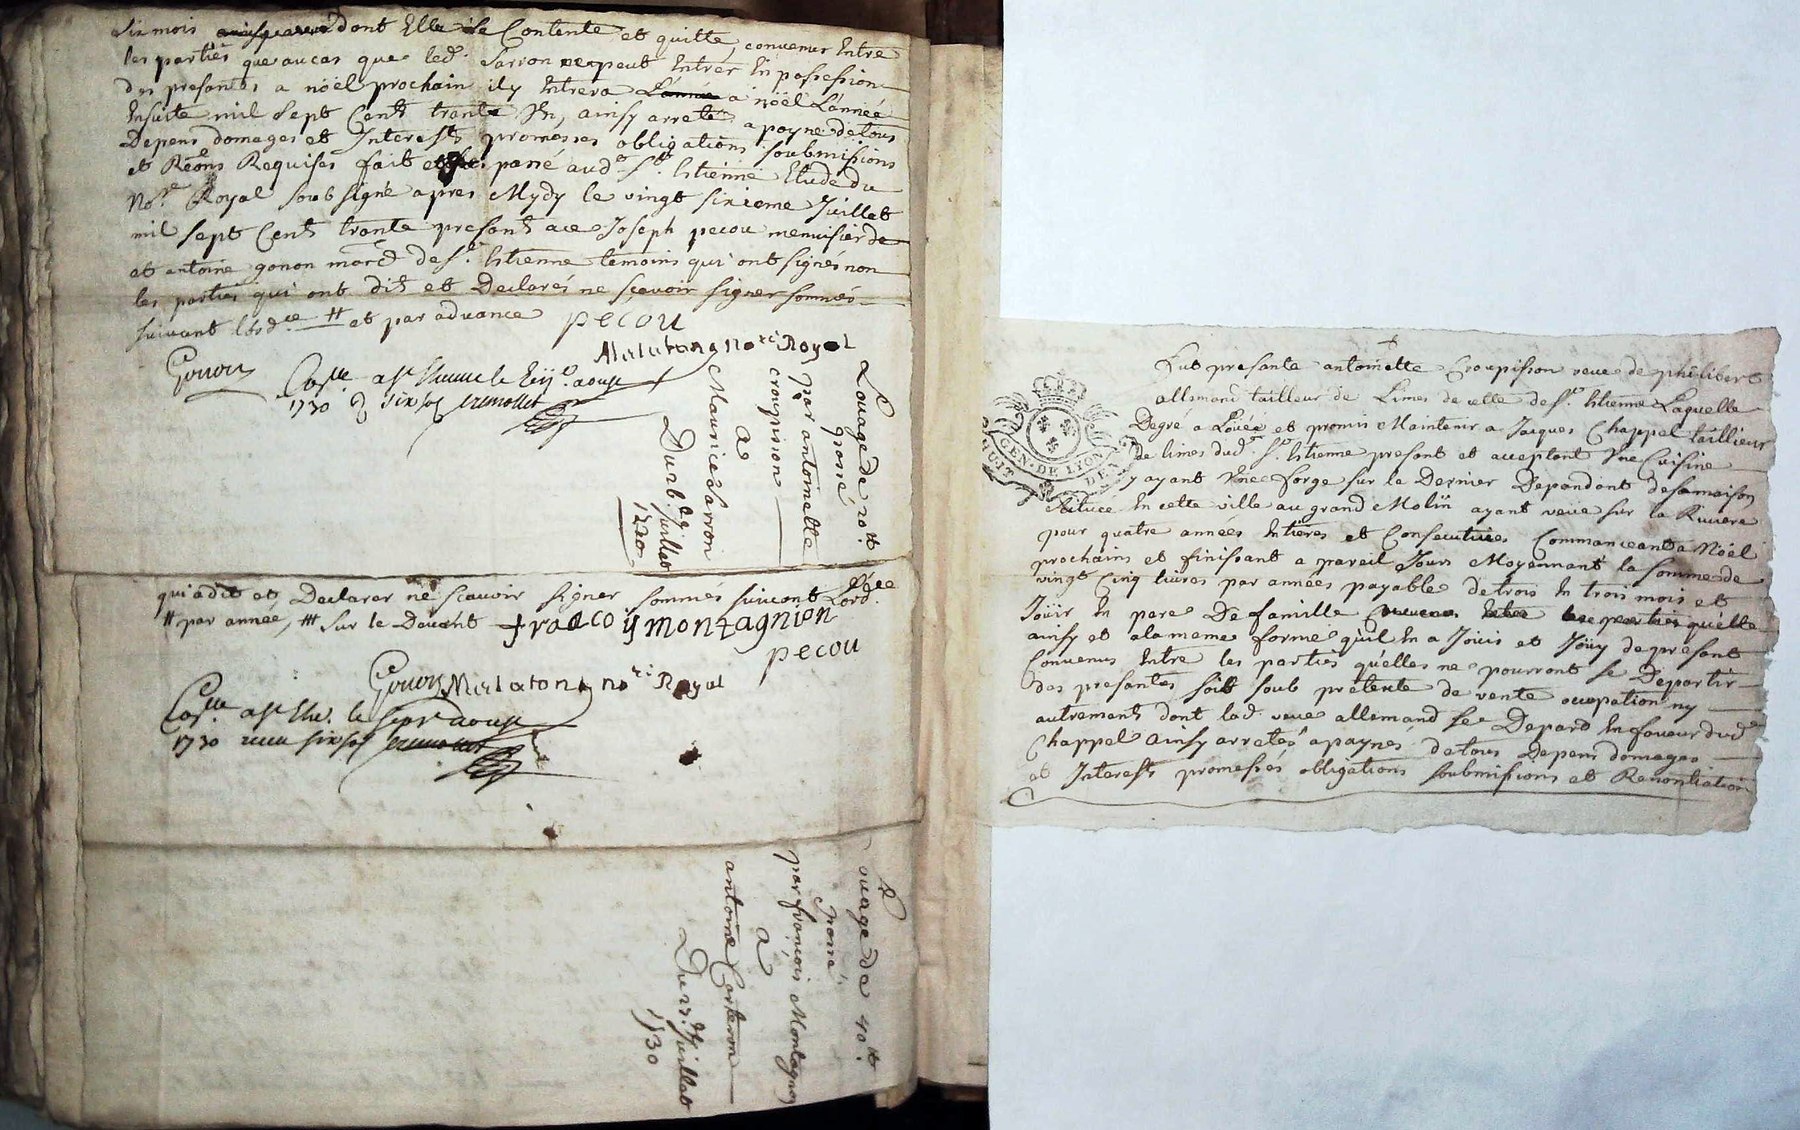 six mois dont Elle se Contente et quitte, convenus Entre
les parties que au cas que led. Sarron ne peut Entrer En possession
des presantes a nöel prochain il y Entrera L'année a nöel L'année
Ensuite mil sept Cent trente Un, ainsy arreté a payne de tous
Depens domages et Interests promesses obligations soubmissions
et Reons Requises fait et passé aud. St. Estienne Etude du
Nore. Royal soubsigné apres Mydy le vingt sixieme Juillet
mil sept Cent trente presants ace Joseph pecou menuisier de
et antoine gonon march de St. Estienne temoins qui ont signés non
les parties qui ont dit et Declarés ne sçavoir signer sommés
suivant l'ordce # et par advance pecou
Gonon
nore Royal
1730 six sos
Louage de 20 tt.
passé
par antoinette
croupisson
a
Maurice Sarron
Du 26 juillet
1730
qui a dit et Declarer ne sçavoir signer sommés suivant Lordce
# par année, ## sur le Devant francoy montagnion
pecou
Gonon nore Royal
aoust
1730 receu six sos
Louage de 40 tt.
passé
par françois Montagnon
a
antoine Carteron
Du 23 Juillet
1730
Fut presante antoinette Croupisson veuve de philibert
allemand tailleur de Limes de celle de St. Estienne Laquelle
Degre a Loüée et promis Maintenir a Jacques Chappel taillieur
de limes dud. St. Estienne presant et acceptant Une Cuisine
y ayant Une forge sur le Dernier Dependant de sa maison
scituée En cette ville au grand Molin ayant veue sur la Riviere
pour quatre années Entieres et Consecutives Commançeant a Nöel
prochains et finissant a pareil Jours Moyennant la somme de
vingt Cinq livres par années payable de trois En trois mois et
Joüir En pere De famille
ainsy et a la meme forme qu'il En a Jouis et Joüy de presant
Convenus Entre les parties qu'elles ne pourront se Departir
des presantes soit soub pretexte de vente ocupation ny
autrement dont lad. veuve allemand se Depard En faveur dud.
Chappel ainsy arretés a paynes de tous Depens domages
et Interests promesses obligations soubmissions et Renontiation
GEN. DE LYON